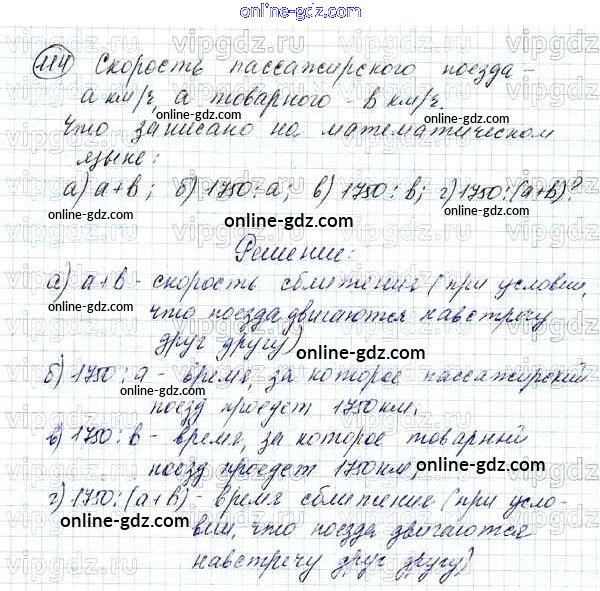 online-gdz.com
114 Скорость пассажирского поезда -
а км/ч, а товарного - в км/ч.
online-gdz.com
Что записано на математическом
языке:
а) а+в; б) 1750:а; в) 1750:в; г) 1750:(а+в)?
online-gdz.com
online-gdz.com
Решение:
online-gdz.com
а) а+в - скорость сближения (при условии,
что поезда двигаются навстречу
друг другу)
online-gdz.com
б) 1750:а - время, за которое пассажирский
поезд проедет 1750км;
online-gdz.com
в) 1750:в - время, за которое товарный
поезд проедет 1750км;
online-gdz.com
г) 1750:(а+в) - время сближение (при усло-
вии, что поезда двигаются
online-gdz.com
навстречу друг другу)
online-gdz.com